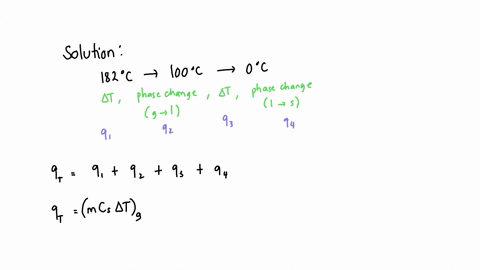 Solution:
182°C → 100°C → 0°C
ΔT, phase change, ΔT, phase change
(g→l) (l→s)
q₁ q₂ q₃ q₄
q_T = q₁ + q₂ + q₃ + q₄
q_T = (mCsΔT)_g